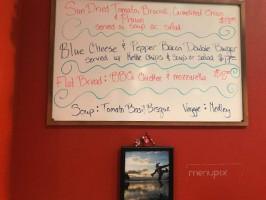 Sun Dried Tomato, Broccoli, Caramelized Onion
& Prawn
served w soup or salad
Blue Cheese & Pepper Bacon Double Burger
served w/ Kettle Chips & Soup or Salad
Flat Bread: BBQ Chicken & mozzarella
Soup: Tomato Basil Bisque Veggie: Medley
menupix